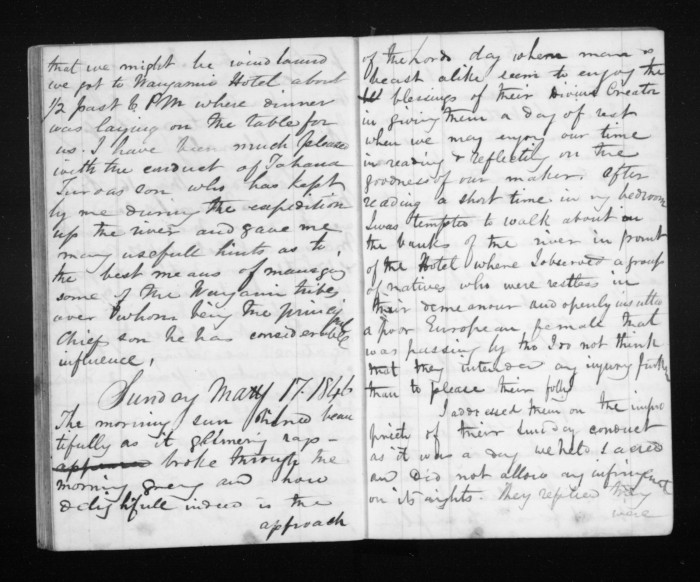 that we might be wind bound
we got to Wanganui Hotel about
1/2 past 6 PM where dinner
was laying on the table for
us. I have been much please
with the conduct of Tahana
Turoas son who has kept
by me during the expedition
up the river and gave me
many usefull hints as to
the best means of managing
some of the Wanganui tribes
over whom being the principal
Chief son he has considerable
influence,
Sunday May 17. 1846
The morning sun shined beau
tifully as it glimering rays -
broke through the
morning grey and how
delightfull indeed is the
approach
of the Lords day where man &
beast alike seem to enjoy the
blessings of their Divine Creator
in giving them a day of rest
when we may enjoy our time
in reading & reflecting on the
goodness of our maker. After
reading a short time in my bedroom
I was tempted to walk about on
the banks of the river in front
of the Hotel where I observed a group
of natives who were restless in
their demeanour and openly insulted
a poor European female that
was passing by tho I do not think
that they intended any injury further
than to please their folly
I addressed them on the impro
priety of their Sunday conduct
as it was a day we held sacred
and did not allow any infringement
on its rights. They replied they
were